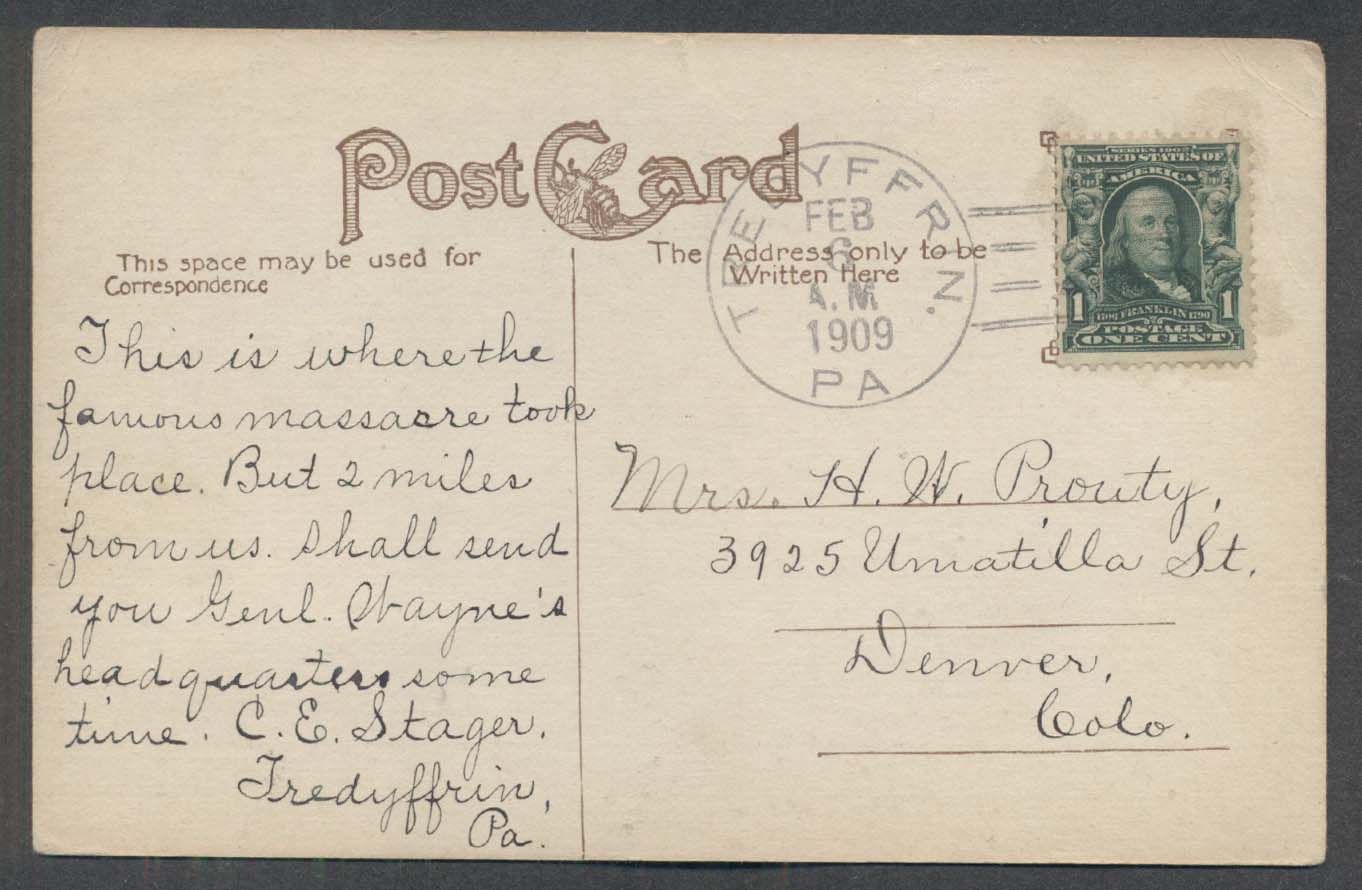 Post Card
This space may be used for
Correspondence
The Address only to be
Written Here
TREDYFFRIN.
FEB
6
A.M
1909
PA
SERIES 1902
UNITED STATES OF
AMERICA
1 1
1706 FRANKLIN 1790
POSTAGE
ONE CENT
This is where the
famous massacre took
place. But 2 miles
from us. Shall send
you Genl. Wayne's
headquarters some
time. C. E. Stager.
Tredyffrin,
Pa.
Mrs. H. W. Prouty,
3925 Umatilla St.
Denver,
Colo.